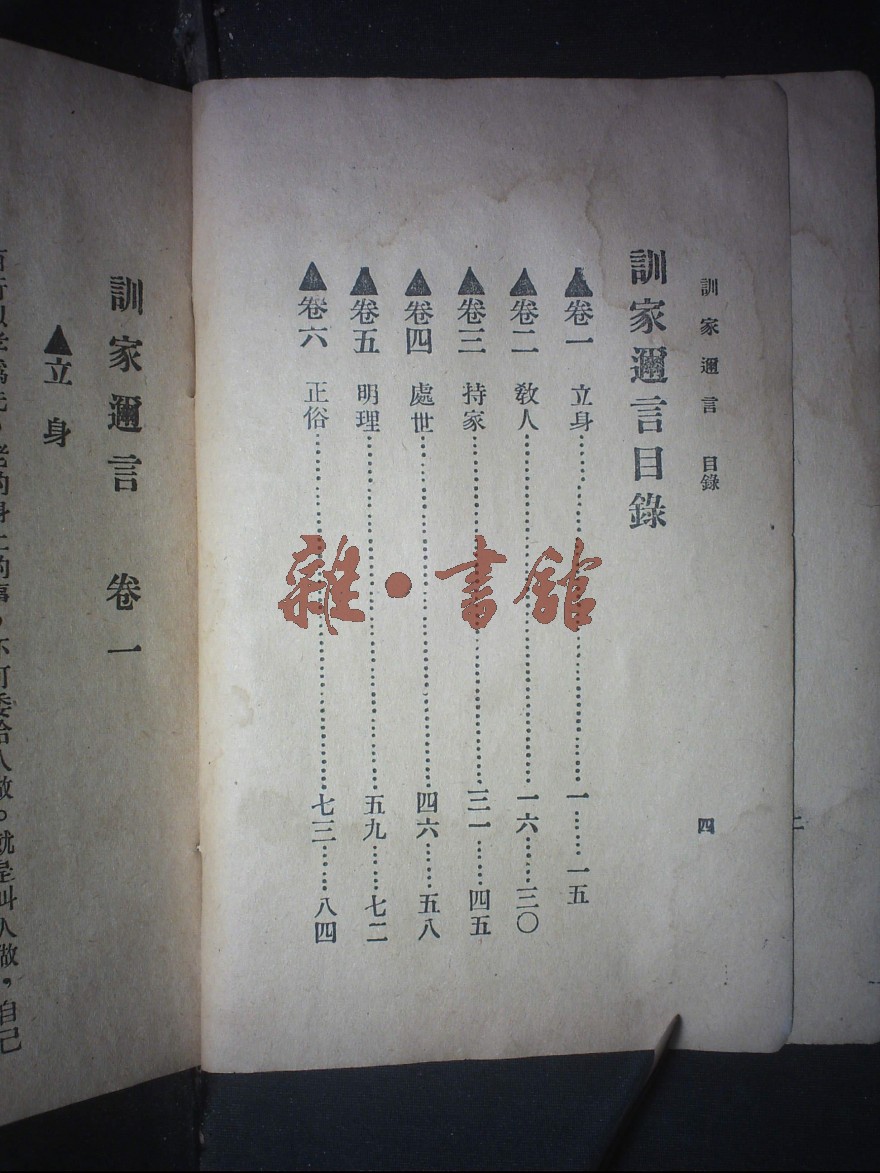 訓家邇言 目錄
四
訓家邇言目錄
▲卷一 立身……一……一五
▲卷二 敎人……一六……三〇
▲卷三 持家……三一……四五
▲卷四 處世……四六……五八
▲卷五 明理……五九……七二
▲卷六 正俗……七三……八四
雜·書館
訓家邇言 卷一
▲立身
的身上的事，不可委給人做。就是叫人做，自己